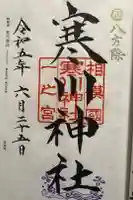 八方除
寒川神社
相模國
寒川神社
一之宮
令和五年六月二十五日